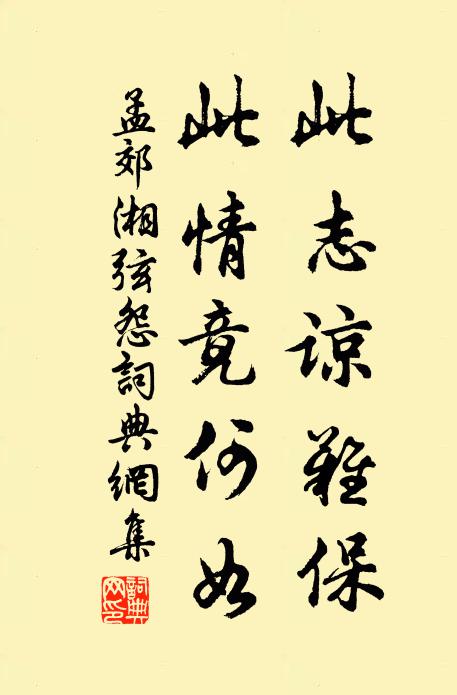 此志谅難保
此情竟何如
孟郊湘弦怨詞典網集
詞典網印